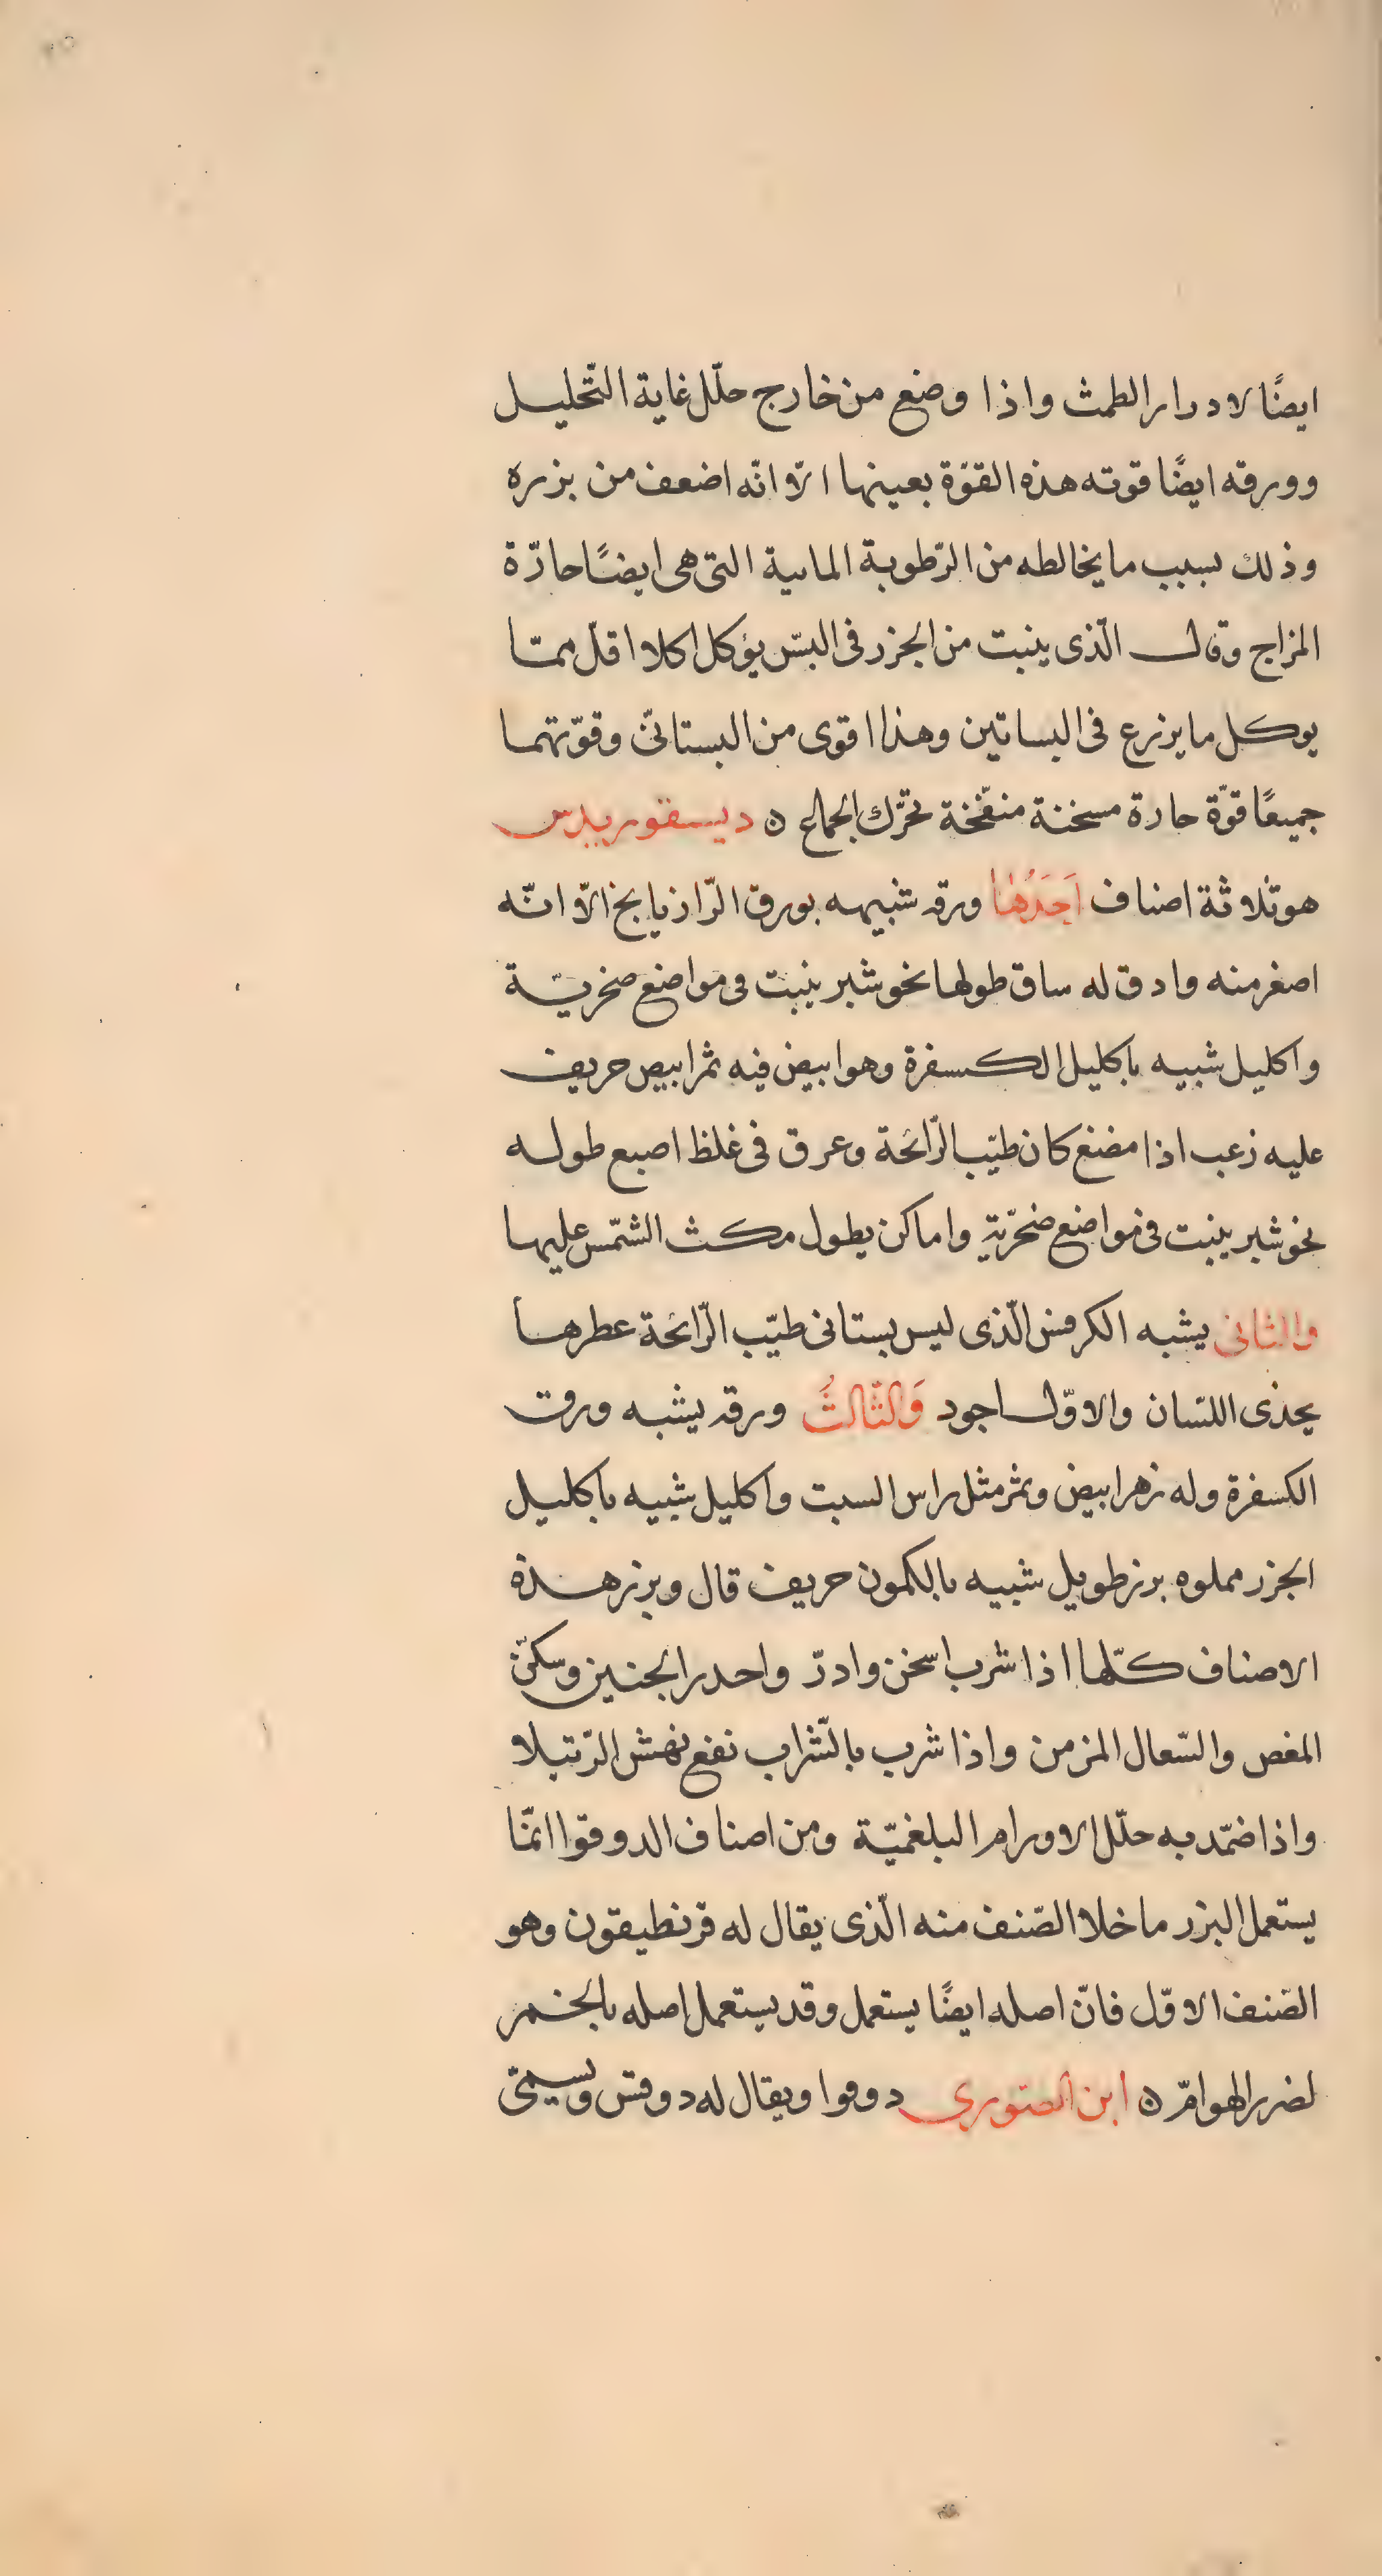 ايضًا لادرار الطمث واذا وضع من خارج حلّل غاية التّحليل
وورقه ايضًا قوته هذه القوّة بعينها الّا انّه اضعف من بزره
وذلك بسبب ما يخالطه من الرّطوبة المايية التى هى ايضًا حارّة
المزاج وقال الّذى ينبت من الجزر فى البسّ يؤكل اكلا اقلّ ممّا
يوكل ما يزرع فى البساتين وهذا اقوى من البستانىّ وقوّتهما
جميعًا قوّة حارة مسخنة منفّخة تحرّك الجماع ه ديسقوريدس
هو ثلاثة اصناف اَحَدُهَا ورقه شبيهه بورق الرّازيانج الّا انّه
اصغر منه وادق له ساق طولها نحو شبر ينبت فى مواضع صخريّة
واكليل شبيه باكليل الكسفرة وهو ابيض فيه ثمر ابيض حريف
عليه زغب اذا مضغ كان طيّب الرّائحة وعرق فى غلظ اصبع طوله
نحو شبر ينبت فى مواضع ضخرّية واماكن يطول مكث الشّمس عليها
والثانى يشبه الكرفس الّذى ليس بستانى طيّب الرّائحة عطرها
يحذى اللسّان والاوّل اجود وَالثّالثُ ورقه يشبه ورق
الكسفرة وله زهر ابيض وثمر مثل راس السبت واكليل شبيه باكليل
الجزر مملوه بزر طويل شبيه بالكمون حريف قال وبزر هذه
الاصناف كلّها اذا شرب اسخن وادرّ واحدر الجنين وسكّن
المغص والسّعال المزمن واذا شرب بالشّراب نفع نهش الرّتيلا
واذا ضمّد به حلّل الاورام البلغميّة ومن اصناف الدوقوا انّما
يستعمل البزر ما خلا الصّنف منه الّذى يقال له قرنطيقون وهو
الصّنف الاوّل فانّ اصله ايضًا يستعمل وقد يستعمل اصله بالخمر
لضرر الهوامّ ه ابن الصّورى دوقوا ويقال له دوقس ويسمّى